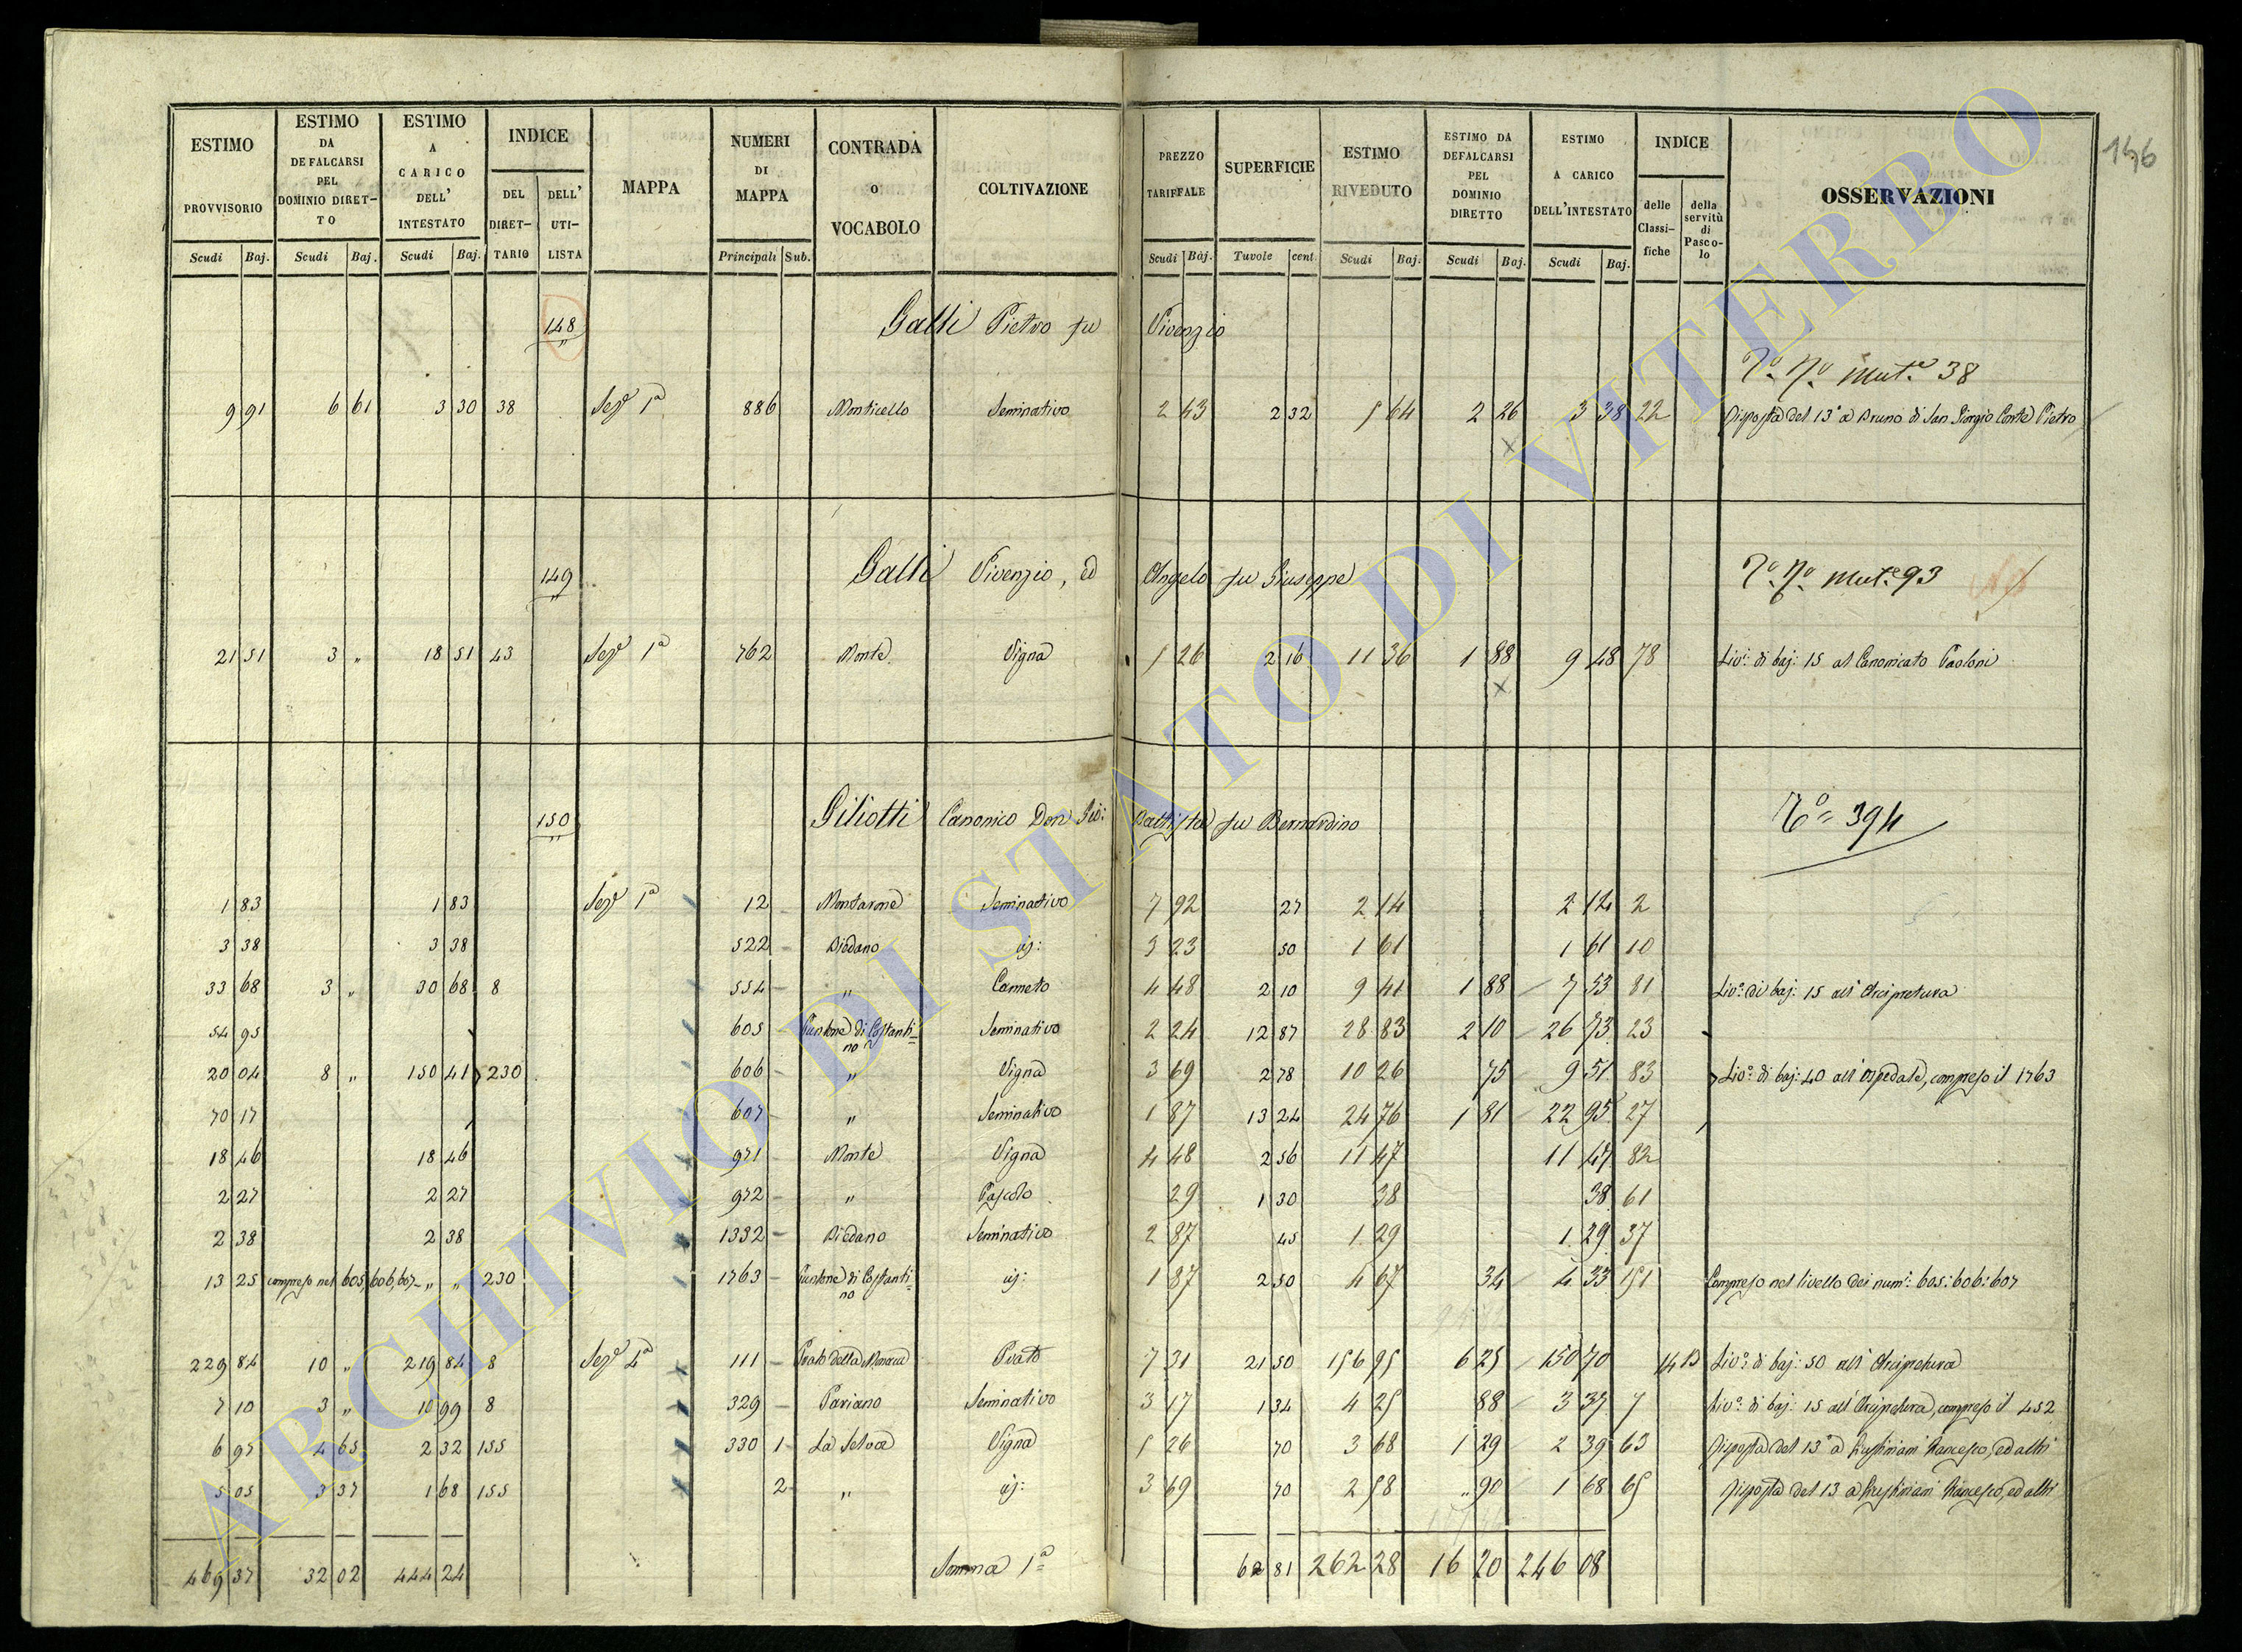 146
ESTIMO PROVVISORIO Scudi Baj.
ESTIMO DA DEFALCARSI PEL DOMINIO DIRETTO Scudi Baj.
ESTIMO A CARICO DELL' INTESTATO Scudi Baj.
INDICE DEL DIRETTARIO DELL' UTILISTA
MAPPA
NUMERI DI MAPPA Principali Sub.
CONTRADA O VOCABOLO
COLTIVAZIONE
PREZZO TARIFFALE Scudi Baj.
SUPERFICIE Tavole cent.
ESTIMO RIVEDUTO Scudi Baj.
ESTIMO DA DEFALCARSI PEL DOMINIO DIRETTO Scudi Baj.
ESTIMO A CARICO DELL'INTESTATO Scudi Baj.
INDICE delle Classifiche della servitù di Pascolo
OSSERVAZIONI
148 Galli Pietro fu Vivenzio
Mut.e 38
9 91 6 61 3 30 38 Sez.e 1a 886 Monticello Seminativo 2 43 2 32 5 64 2 26 3 38 22 Risposta del 13° a Bruno di San Giorgio Conte Pietro
149 Galli Vivenzio, ed Angelo fu Giuseppe
Mut.e 93
21 51 3 " 18 51 43 Sez.e 1a 762 Monte Vigna 5 26 2 16 11 36 1 88 9 48 78 Liv.o di baj: 15 al Canonicato Paoloni
150 Giliotti Canonico Don Gio: Battista fu Bernardino
394
1 83 1 83 Sez.e 1a 12 Montarone Seminativo 7 92 27 2 14 2 14 2
3 38 3 38 522 Biedano id: 3 23 50 1 61 1 61 10
33 68 3 " 30 68 8 554 " Canneto 4 48 2 10 9 41 1 88 7 53 81 Liv.o di baj: 15 all' Arcipretura
54 95 605 Cantone di Costantino Seminativo 2 24 12 87 28 83 2 10 26 73 23
20 04 8 " 150 41 230 606 " Vigna 3 69 2 78 10 26 75 9 51 83 Liv.o di baj: 40 all'Ospedale, compreso il 1763
70 17 607 " Seminativo 1 87 13 24 24 76 1 81 22 95 27
18 46 18 46 971 Monte Vigna 4 48 2 56 11 47 11 47 82
2 27 2 27 972 " Pascolo 29 1 30 38 38 61
2 38 2 38 1332 Biedano Seminativo 2 87 45 1 29 1 29 37
13 25 compreso nel 605, 606, 607 " " 230 1763 Cantone di Costantino id: 1 87 2 50 4 67 34 4 33 151 Compreso nel livello dei num.i: 605: 606: 607
229 84 10 " 219 84 8 Sez.e 4a 111 Prato della Monaca Prato 7 31 21 50 156 95 6 25 150 70 14 Liv.o di baj: 50 all' Arcipretura
7 10 3 " 10 99 8 329 Pariano Seminativo 3 17 1 34 4 25 88 3 37 7 Liv.o di baj: 15 all'Arcipretura, compreso il 452
6 97 4 65 2 32 155 330 1 La Selva Vigna 5 26 70 3 68 1 29 2 39 63 Risposta del 13° a Giustiniani Francesco, ed altri
5 05 3 37 1 68 155 2 " id: 3 69 70 2 58 " 90 1 68 65 Risposta del 13 a Giustiniani Francesco, ed altri
469 37 32 02 444 24 Somma 1a 62 81 262 28 16 20 246 08
ARCHIVIO DI STATO DI VITERBO